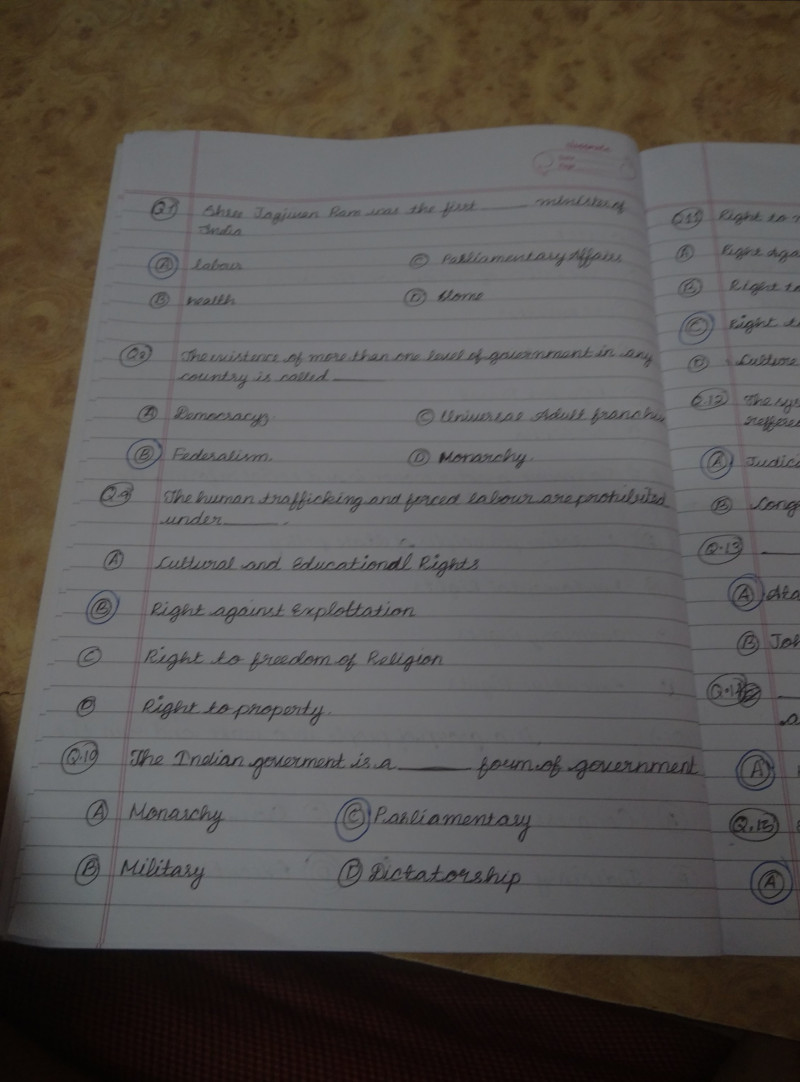 Q.7 Shree Jagjivan Ram was the first ____ minister of
India
A labour
C Parliamentary Affairs
B Health
D Home
Q.8 The existence of more than one level of government in any
country is called ____
A Democracy
C Universal Adult franchise
B Federalism
D Monarchy
Q.9 The human trafficking and forced labour are prohibited
under ____.
A Cultural and Educational Rights
B Right against Exploitation
C Right to freedom of Religion
D Right to property.
Q.10 The Indian goverment is a ____ foum of government
A Monarchy
C Parliamentary
B Military
D Dictatorship
Q.11 Right to
A Right Aga
B Right to
C Right t
D Culture
Q.12 The sys
reffered
A Judic
B Cong
Q.13 ____
A
B Joh
A
Q.15
A